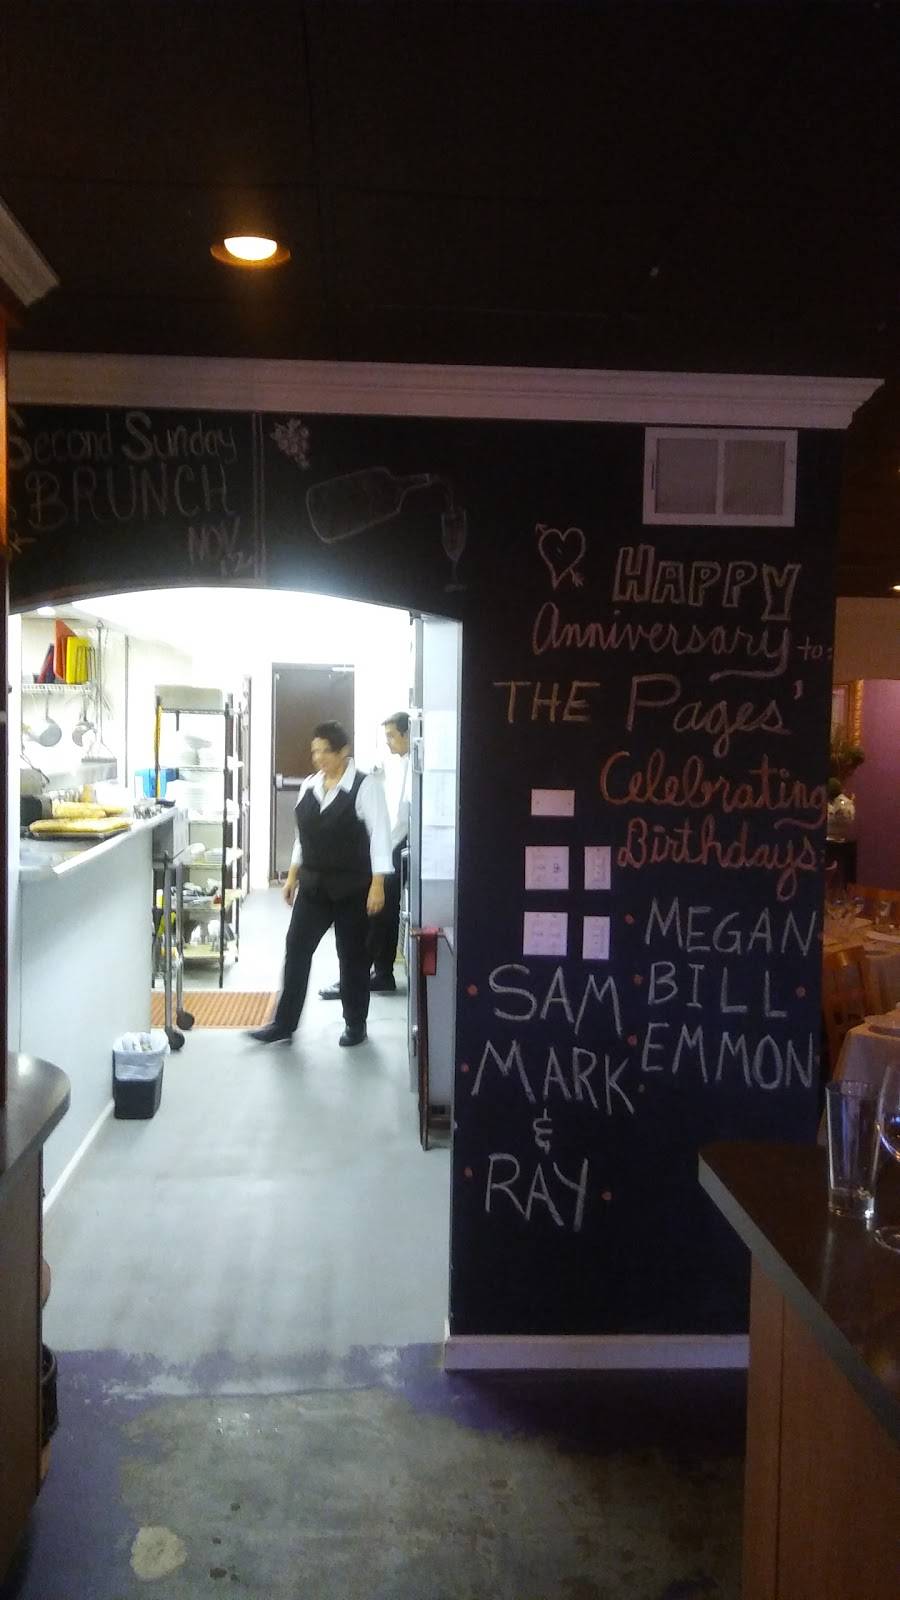 Second Sunday
BRUNCH
NOV.
12
HAPPY
Anniversary to:
THE Pages'
Celebrating
Birthdays:
MEGAN
SAM
BILL
MARK
EMMON
&
RAY